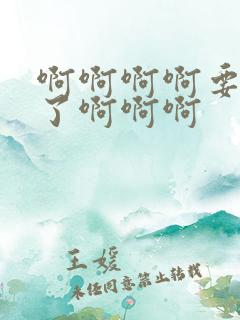 啊啊啊啊要
了啊啊啊
王媛
未经同意禁止转载